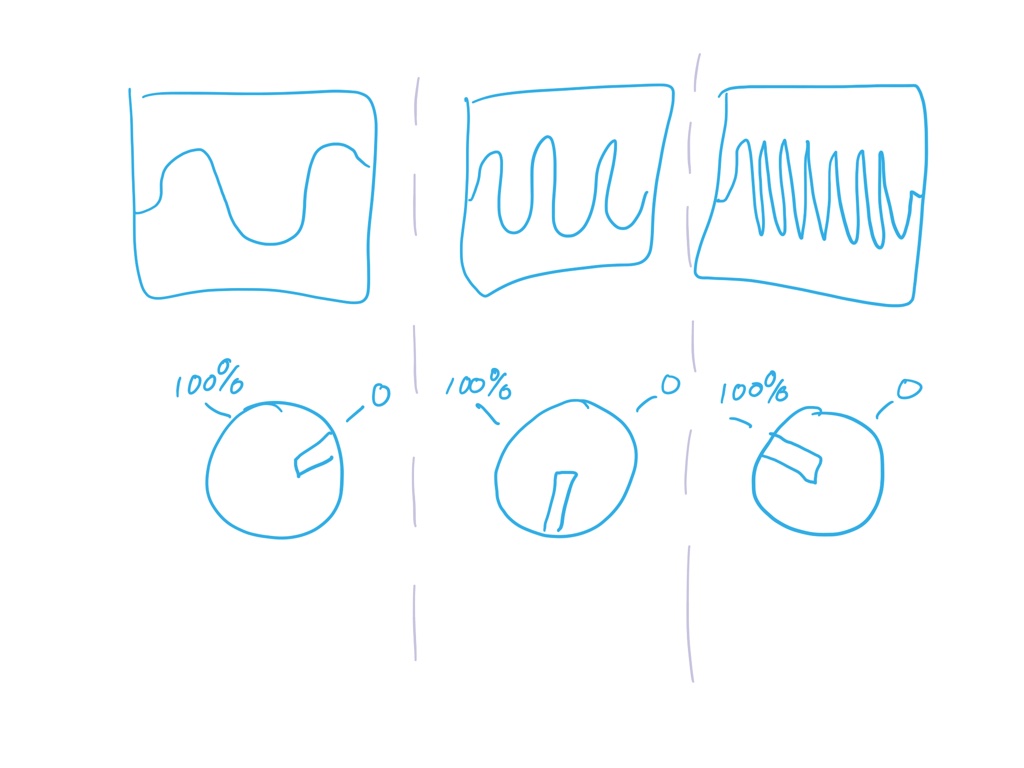 100% 0
100% 0
100% 0